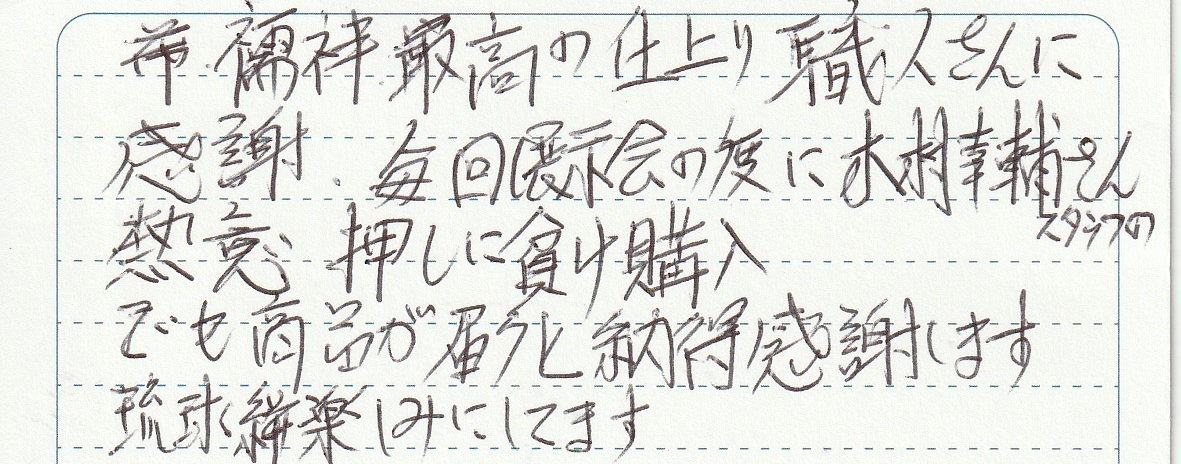 帯、襦袢最高の仕上り職人さんに
感謝。毎回展示会の度に木村幸輔さん
スタッフの
熱意、押しに負け購入
でも商品が届くと納得感謝します
琉球絣楽しみにしてます